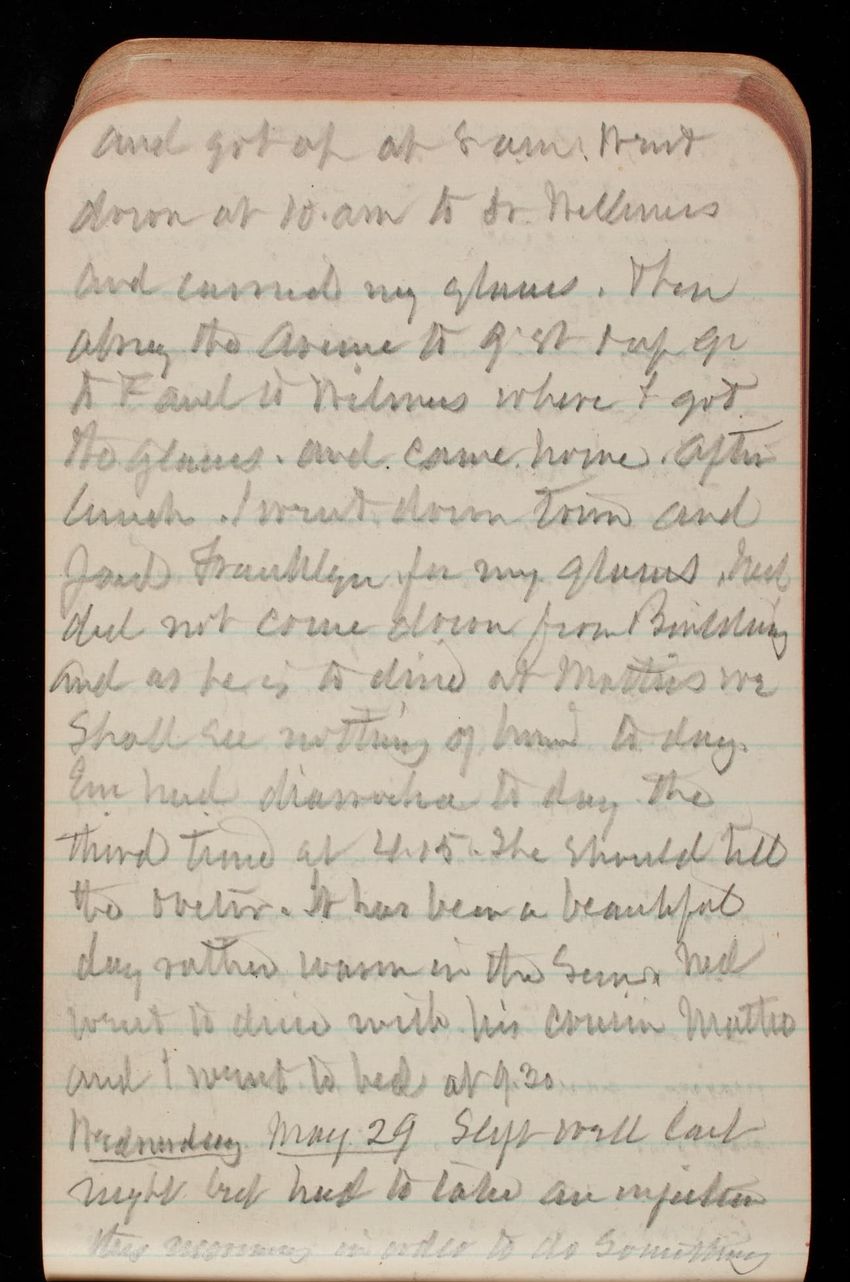 and got up at 8 am. Went
down at 10. am to Dr. Wilmers
and carried my glasses. Then
along the Avenue to 9" St & up 9"
to F and to Wilmers where I got
the glasses. and came home. After
lunch. I went down town and
paid Franklyn for my glasses. Ned
did not come down from Building
and as he is to dine at Matties we
shall see nothing of him to day.
Em had diarrohea to day the
third time at 4.15. She should tell
the Doctor. It has been a beautiful
day rather warm in the Sun. Ned
went to dine with his cousin Mattie
and I went to bed at 9.30
Wednesday May 29 Slept well last
night but had to take an injection
this morning in order to do something